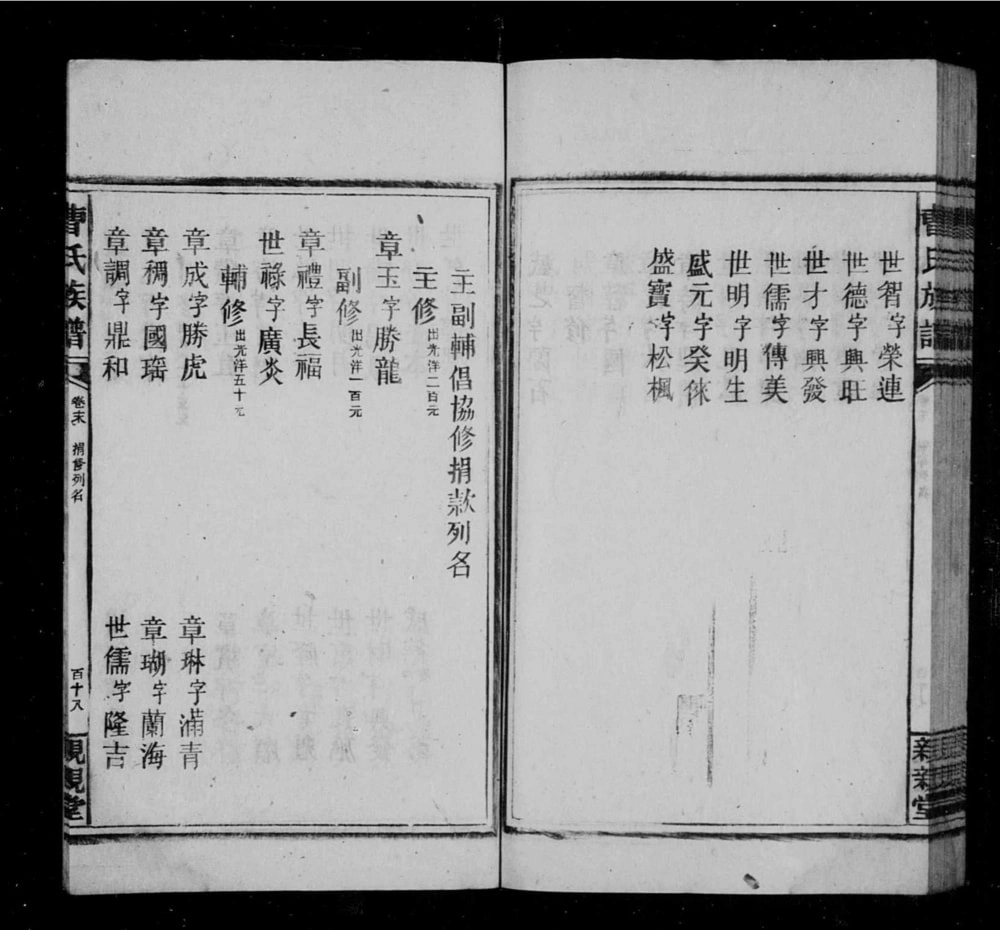 曹氏族譜
世智字榮連
世德字興旺
世才字興發
世儒字傳美
世明字明生
盛元字癸俫
盛寶字松楓
主副輔倡協修捐款列名
主修出光洋二百元
章玉字勝龍
副修出光洋一百元
章禮字長福
世祿字廣炎
輔修出光洋五十元
章成字勝虎
章琳字滿青
章稠字國瑤
章瑚字蘭海
章調字鼎和
世儒字隆吉
曹氏族譜
卷末
捐修列名
百十八
親親堂